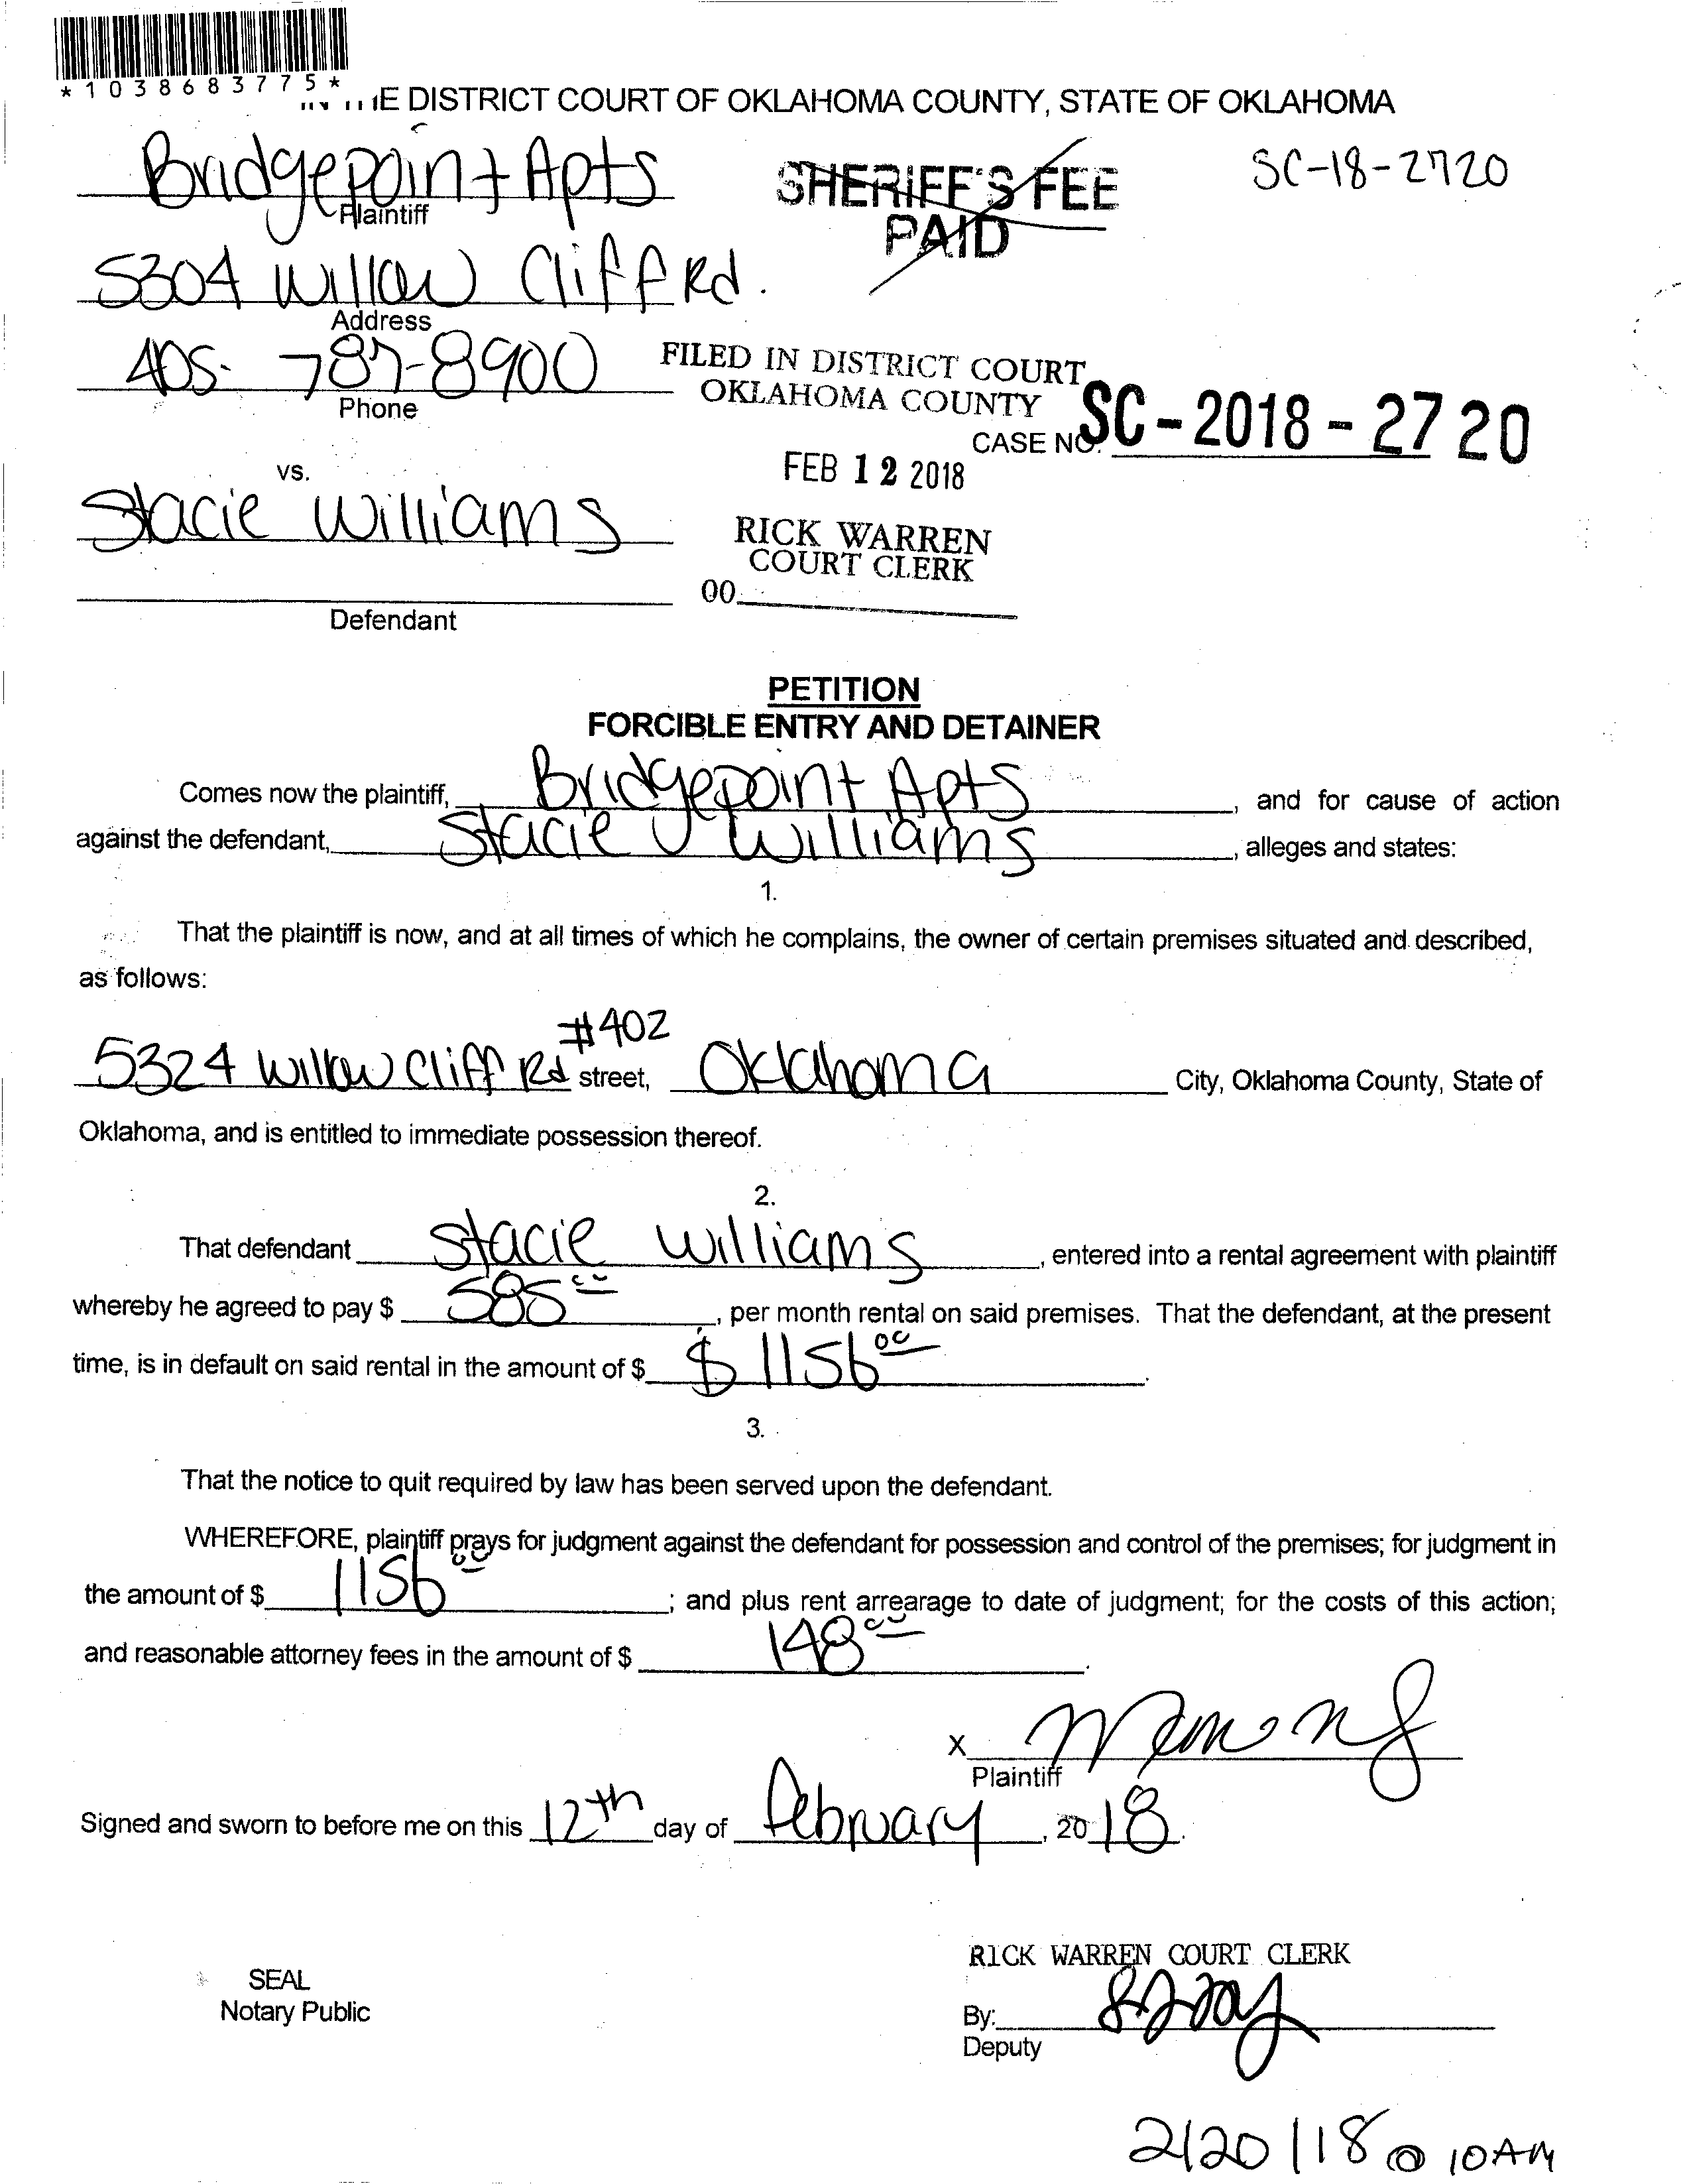 *1038683775*
IE DISTRICT COURT OF OKLAHOMA COUNTY, STATE OF OKLAHOMA
Bridgepoint Apts
Plaintiff
SHERIFF'S FEE
PAID
SC-18-2720
5304 Willow Cliff Rd.
Address
405-787-8900
Phone
FILED IN DISTRICT COURT
OKLAHOMA COUNTY
CASE NO. SC-2018-2720
FEB 12 2018
vs.
Stacie Williams
RICK WARREN
COURT CLERK
00
Defendant
PETITION
FORCIBLE ENTRY AND DETAINER
Comes now the plaintiff, Bridgepoint Apts, and for cause of action
against the defendant, Stacie Williams, alleges and states:
1.
That the plaintiff is now, and at all times of which he complains, the owner of certain premises situated and described,
as follows:
#402
5324 Willow Cliff Rd street, Oklahoma City, Oklahoma County, State of
Oklahoma, and is entitled to immediate possession thereof.
2.
That defendant Stacie Williams, entered into a rental agreement with plaintiff
whereby he agreed to pay $ 585 00, per month rental on said premises. That the defendant, at the present
time, is in default on said rental in the amount of $ $1156 00.
3.
That the notice to quit required by law has been served upon the defendant.
WHEREFORE, plaintiff prays for judgment against the defendant for possession and control of the premises; for judgment in
the amount of $ 1156 00; and plus rent arrearage to date of judgment; for the costs of this action;
and reasonable attorney fees in the amount of $ 148 00.
X
Plaintiff
Signed and sworn to before me on this 12th day of February, 2018.
RICK WARREN COURT CLERK
SEAL
Notary Public
By:
Deputy
2/20/18 @ 10AM